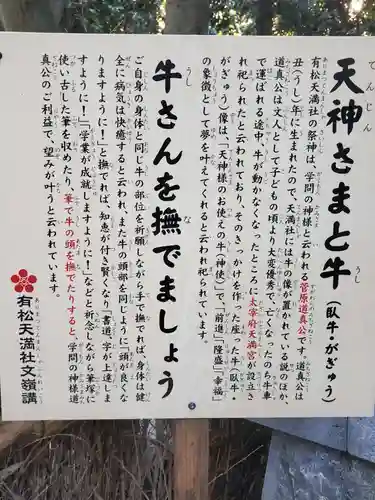 天神さまと牛(臥牛・がぎゅう)
有松天満社の祭神は、学問の神様と云われる菅原道真公です。道真公は
丑(うし)年に生まれたので、天満社には牛の像が置かれている説のほか、
道真公は文人として子どもの頃より大変優秀で、亡くなったのち牛車
で運ばれる途中、牛が動かなくなったところに太宰府天満宮が設立さ
れ祀られたと云われており、そのきっかけを作った座った牛(臥牛・
がぎゅう)像は、「天神様のお使えの牛(神使)」で、「前進」「隆盛」、「幸福」
の象徴として夢を叶えてくれると云われ祀られています。
牛さんを撫でましょう
ご自身の身体と同じ牛の部位を祈願しながら手で撫でれば、身体は健
全に病気は快癒すると云われ、また牛の頭部を同じように「頭が良くな
りますように!」と撫でれば、知恵が付き賢くなり「書道・字が上達しま
すように!」「学業が成就しますように!」などと祈念しながら筆塚に
使い古した筆を収めたり、筆で牛の頭を撫でたりすると、学問の神様道
真公のご利益で、望みが叶うと云われています。
有松天満社文嶺講